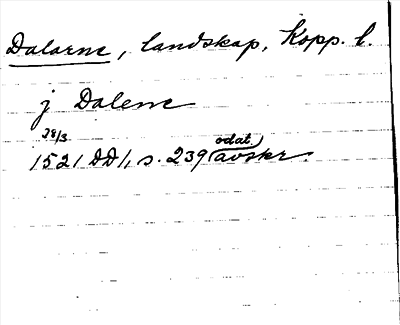 Dalarne, landskap, Kopp. l.
j Dalene
28/3
1521 DD1, s. 239 (odat. avskr.